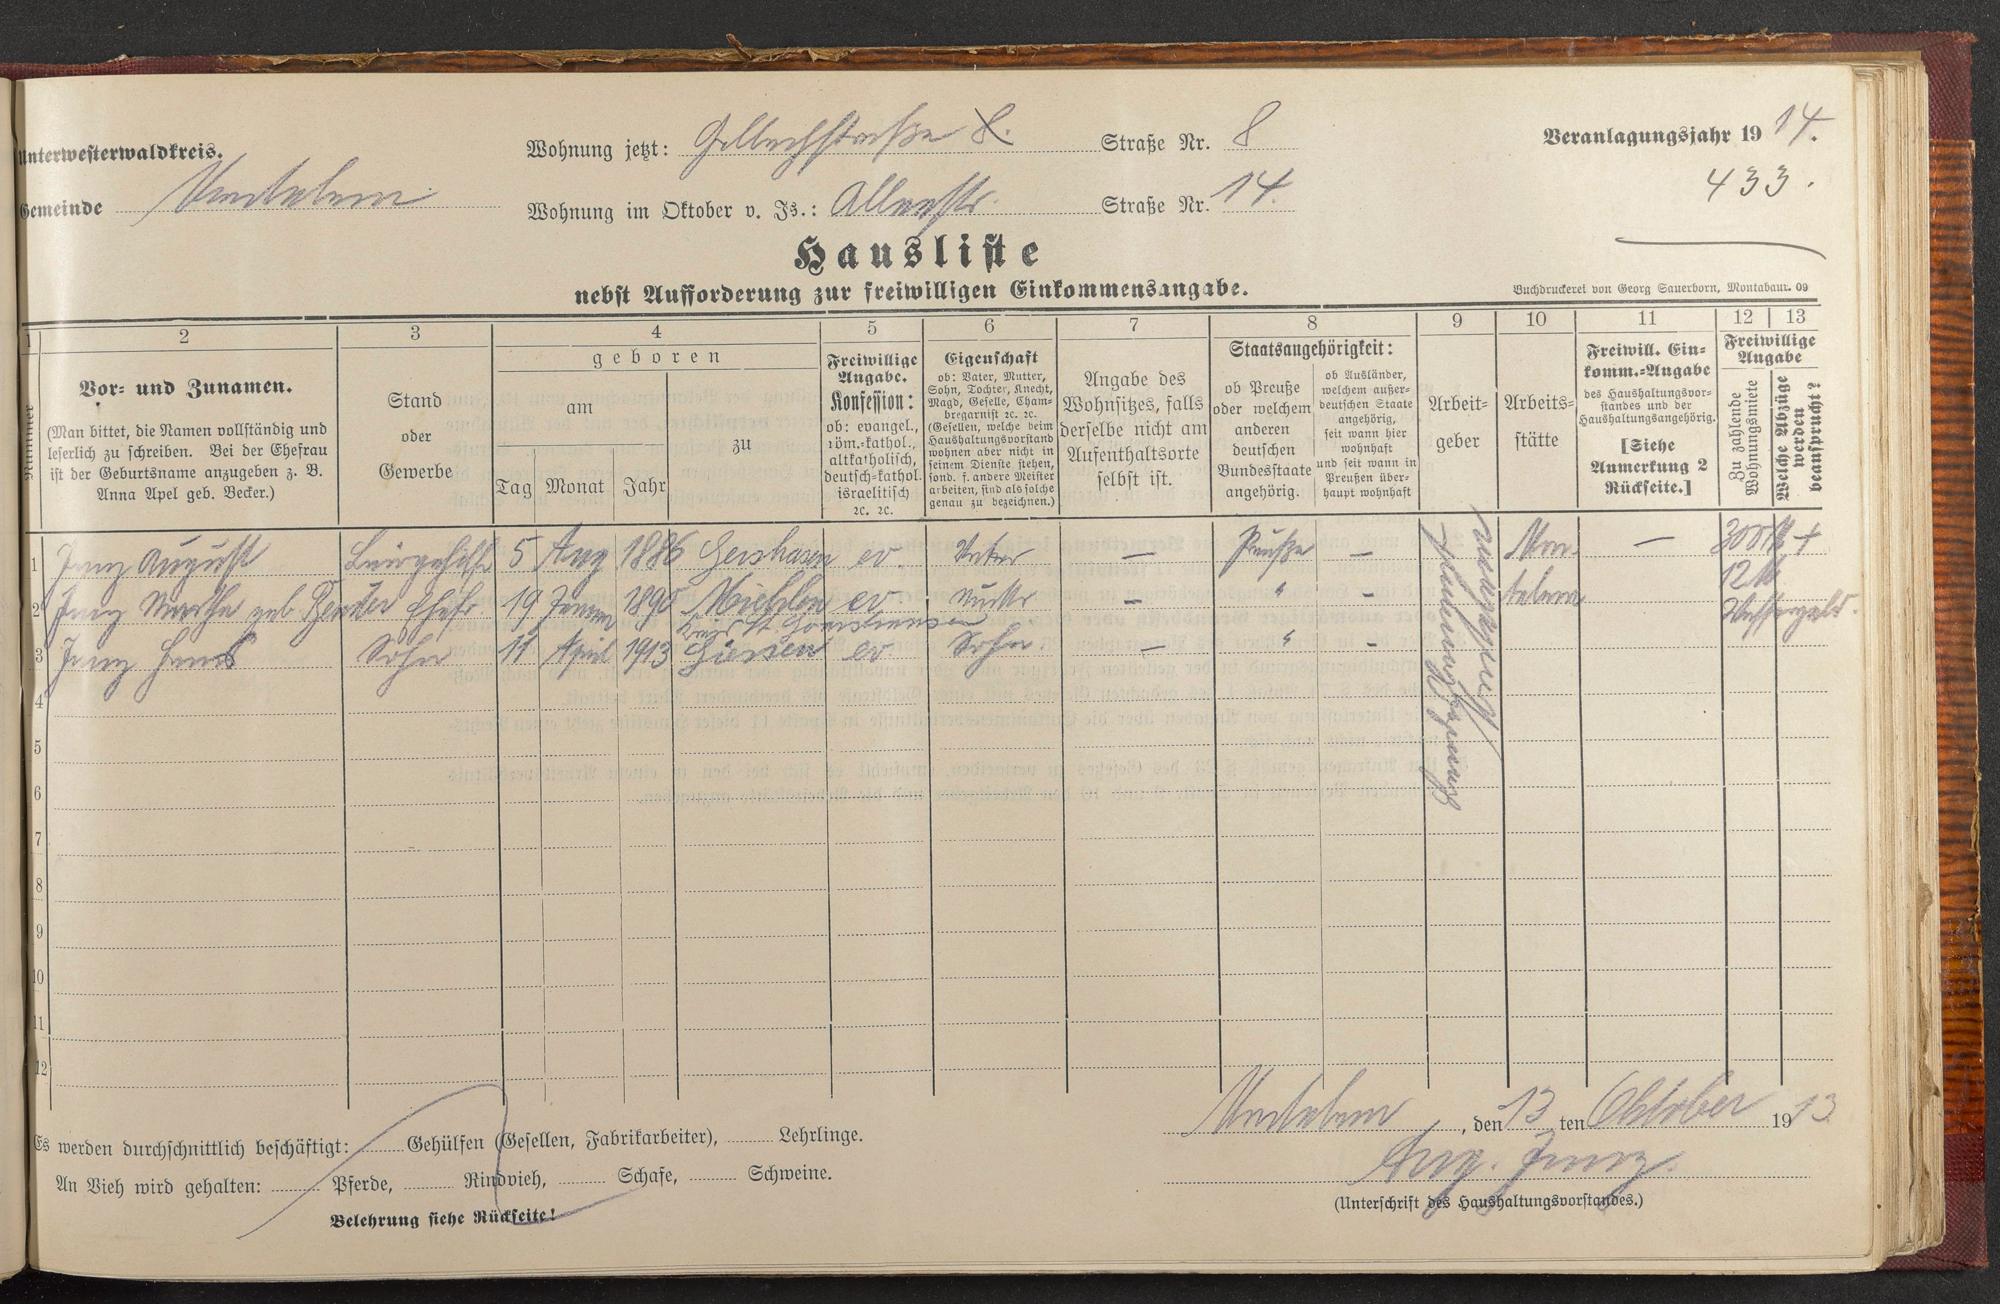 Unterwesterwaldkreis.
Wohnung jetzt: Gelbachstraße 8. Straße Nr. 8
Veranlagungsjahr 1914.
Gemeinde Montabaur
Wohnung im Oktober v. Js.: Alleestr. Straße Nr. 14.
433.
Hausliste
nebst Aufforderung zur freiwilligen Einkommensangabe.
Buchdruckerei von Georg Sauerborn, Montabaur. 09
1 2 3 4 5 6 7 8 9 10 11 12 13
Nummer
Vor- und Zunamen.
(Man bittet, die Namen vollständig und
leserlich zu schreiben. Bei der Ehefrau
ist der Geburtsname anzugeben z. B.
Anna Apel geb. Becker.)
Stand
oder
Gewerbe
geboren
am
Tag Monat Jahr
zu
Freiwillige
Angabe.
Konfession:
ob: evangel.,
röm.-kathol.,
altkatholisch,
deutsch-kathol.
israelitisch
2c. 2c.
Eigenschaft
ob: Vater, Mutter,
Sohn, Tochter, Knecht,
Magd, Geselle, Cham-
bregarnist 2c. 2c.
(Gesellen, welche beim
Haushaltungsvorstand
wohnen aber nicht in
seinem Dienste stehen,
sond. f. andere Meister
arbeiten, sind als solche
genau zu bezeichnen.)
Angabe des
Wohnsitzes, falls
derselbe nicht am
Aufenthaltsorte
selbst ist.
Staatsangehörigkeit:
ob Preuße
oder welchem
anderen
deutschen
Bundesstaate
angehörig.
ob Ausländer,
welchem außer-
deutschen Staate
angehörig,
seit wann hier
wohnhaft
und seit wann in
Preußen über-
haupt wohnhaft
Arbeit-
geber
Arbeits-
stätte
Freiwill. Ein-
komm.-Angabe
des Haushaltungsvor-
standes und der
Haushaltungsangehörig.
[Siehe
Anmerkung 2
Rückseite.]
Freiwillige
Angabe
Zu zahlende
Wohnungsmiete
Welche Abzüge
werden
beansprucht?
1 August 5 Aug 1886 ev. Vater — Preuße — Mon- —
2 Martha geb. Bender Ehefr. 19 1890 Miehlen ev Mutter — " — tabaur 12 M Wassergeld.
Kreis St. Goarshausen
3 Hans Sohn 11 April 1913 Giessen ev Sohn — " —
4
5
6
7
8
9
10
11
12
Es werden durchschnittlich beschäftigt: Gehülfen (Gesellen, Fabrikarbeiter), Lehrlinge.
An Vieh wird gehalten: Pferde, Rindvieh, Schafe, Schweine.
Belehrung siehe Rückseite!
Montabaur, den 13 ten Oktober 1913
Aug.
(Unterschrift des Haushaltungsvorstandes.)